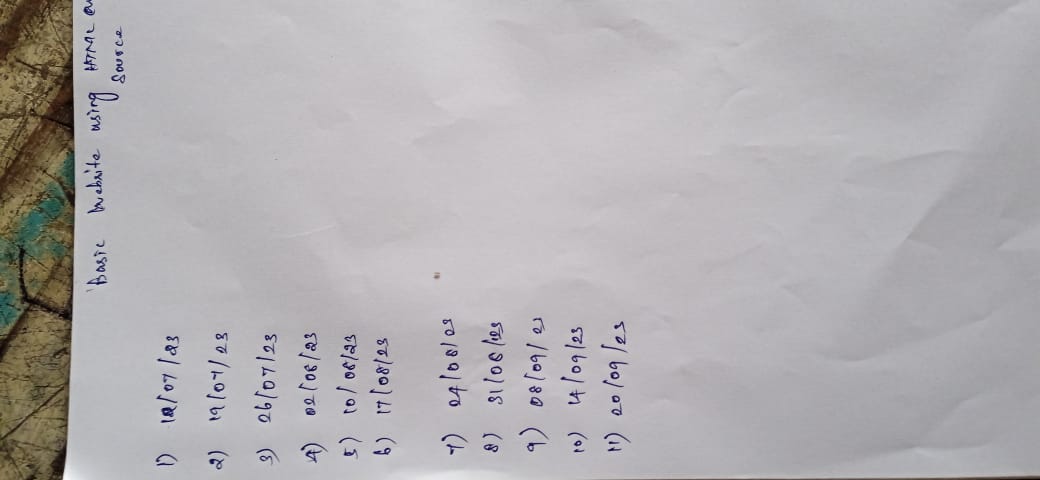 Basic website using HTML
Source
1) 12/07/23
2) 19/07/23
3) 26/07/23
4) 02/08/23
5) 10/08/23
6) 17/08/23
7) 24/08/23
8) 31/08/23
9) 08/09/23
10) 14/09/23
11) 20/09/23